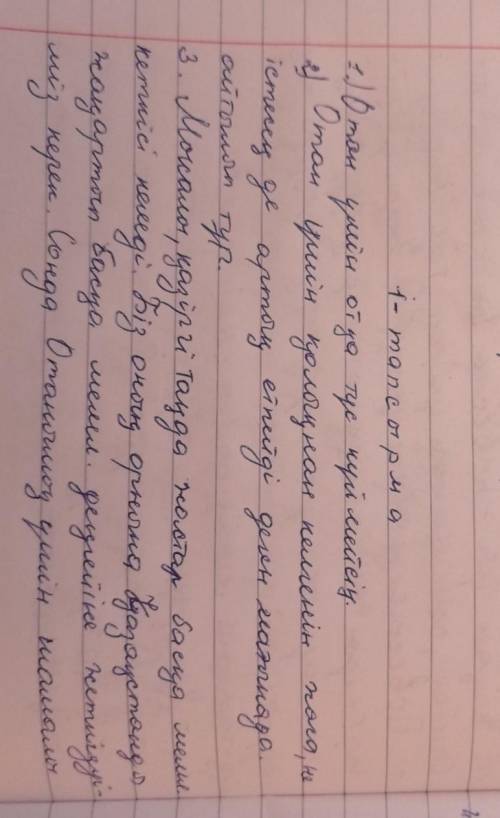 1-тапсырма
1.) Отан үшін отқа түс күймейсің.
2) Отан үшін қолыңнан келгенін жаса, не
істесең де артық етпейді деген мағынада.
айтылып тұр.
3. Мысалы, қазіргі таңда жастар басқа мемл.
кеткісі келеді. Біз оның орнына Қазақстанды
жаңартып басқа мемл. деңгейіне жеткізуі-
міз керек. Сонда Отанымыз үшін шамалы